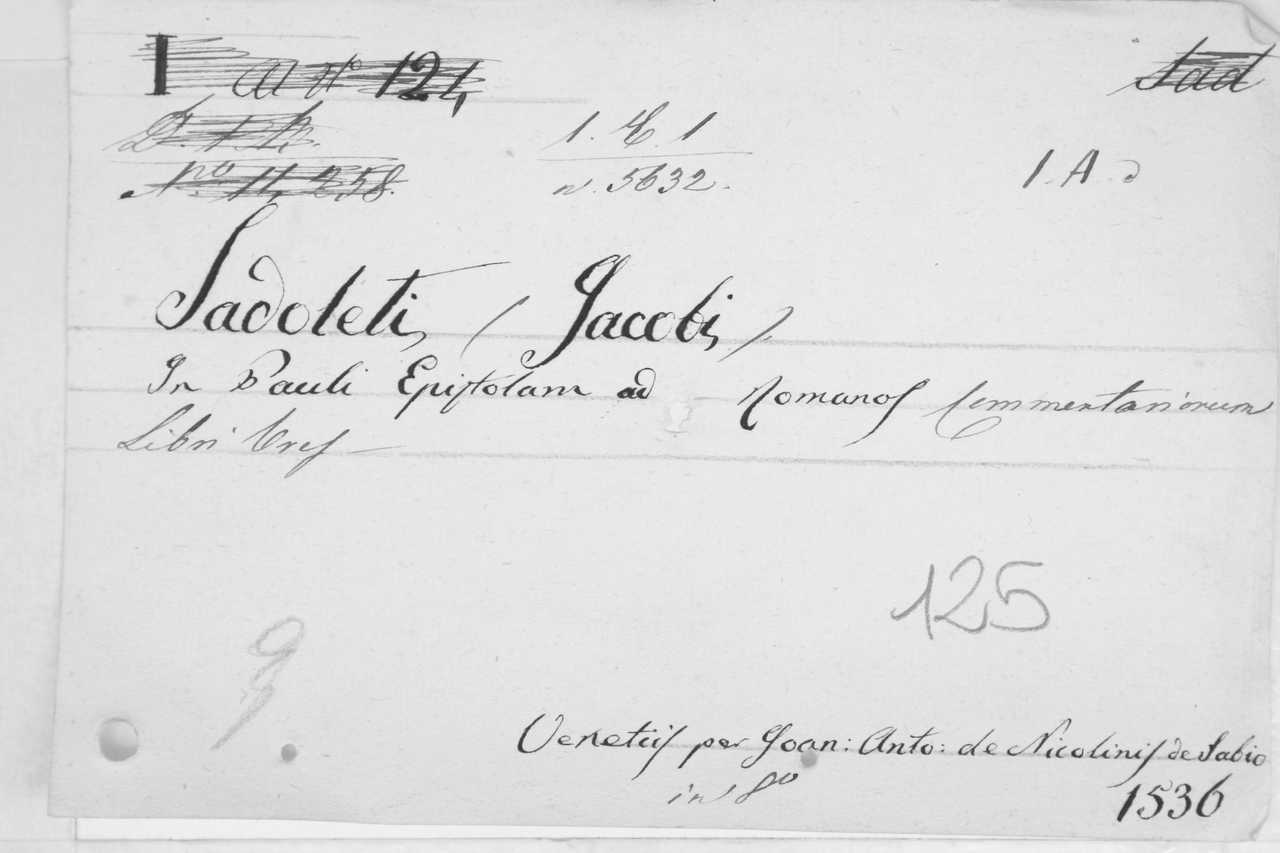 I A N° 124 Sad
N° 11,258.
1. E. 1
n. 5632.
1. A. d
Sadoleti, (Jacobi,)
In Pauli Epistolam ad Romanos Commentariorum
Libri tres
125
Venetiis per Joan: Anto: de Nicolinis de Sabio
in 8° 1536